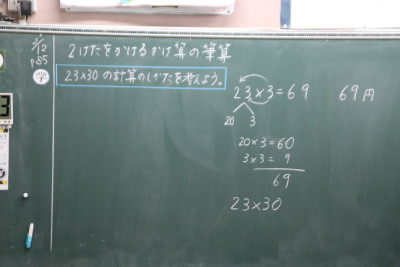 5/12
p85
2けたをかけるかけ算の筆算
23×30の計算のしかたを考えよう。
23×3=69 69円
20 3
20×3=60
3×3= 9
69
23×30